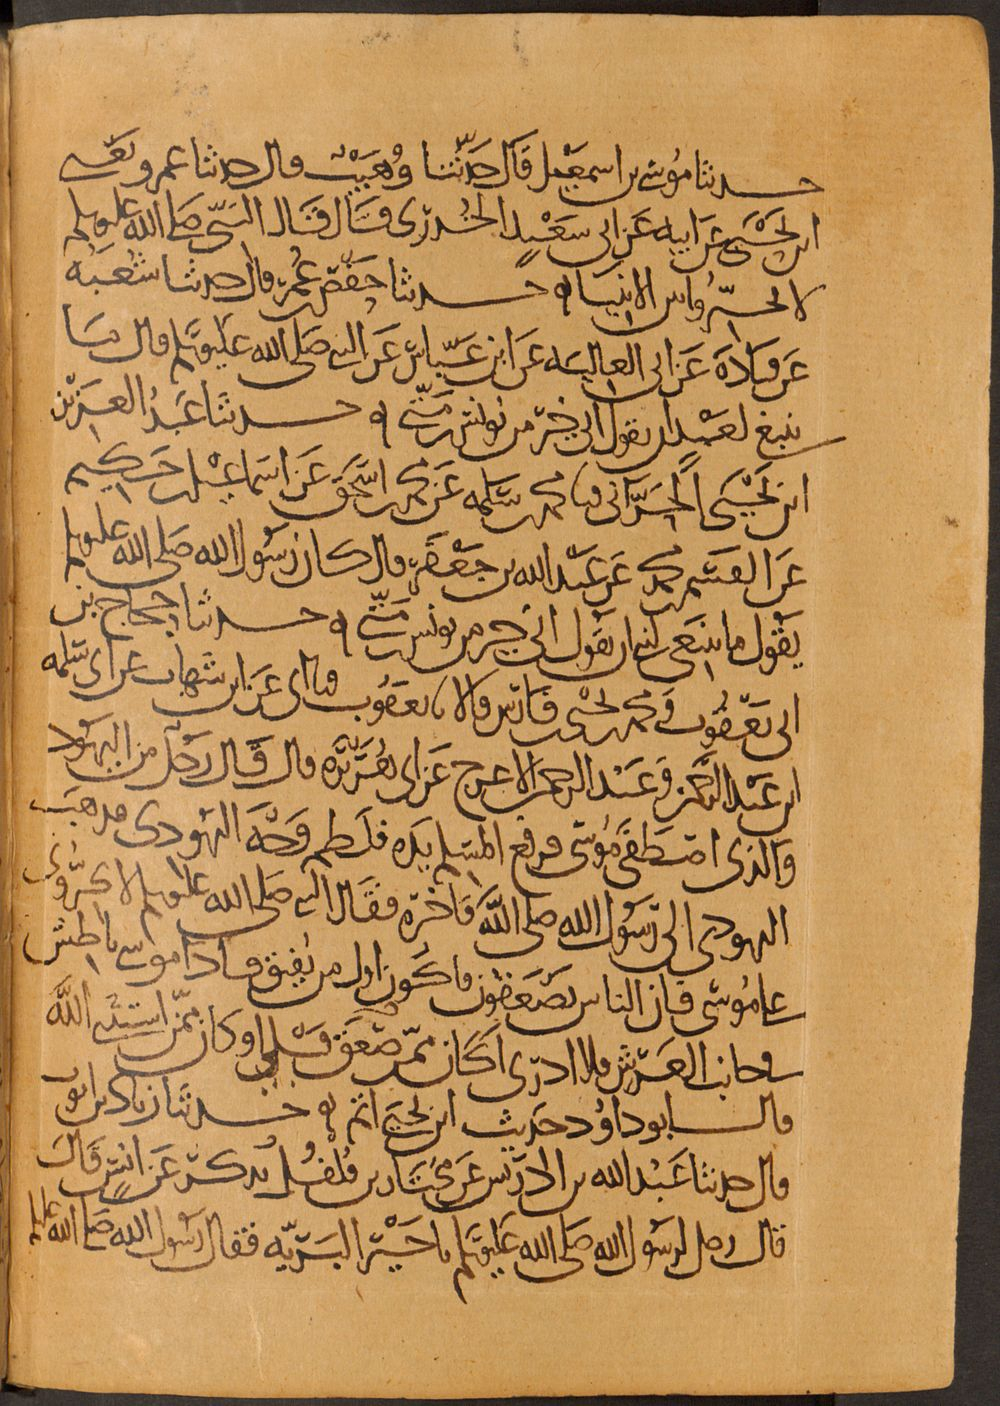 حدثنا موسى بن اسمعيل قال حدثنا وهيب قال حدثنا عمرو يعني
ابن يحيى عن ابيه عن ابي سعيد الخدري قال قال النبي صلى الله عليه وسلم
لا تخيروا بين الانبياء حدثنا حفص بن عمر قال حدثنا شعبه
عن قتادة عن ابي العاليه عن ابن عباس عن النبي صلى الله عليه وسلم قال ما
ينبغي لعبد ان يقول اني خير من يونس بن متى حدثنا عبد العزيز
ابن يحيى الحراني نا محمد بن سلمه عن محمد بن اسحق عن اسماعيل بن حكيم
عن القسم بن محمد عن عبد الله بن جعفر قال كان رسول الله صلى الله عليه وسلم
يقول ما ينبغي لنبي ان يقول اني خير من يونس بن متى حدثنا حجاج بن
ابي يعقوب ومحمد بن يحيى بن فارس قالا نا يعقوب نا ابي عن ابن شهاب عن ابي سلمه
ابن عبد الرحمن وعبد الرحمن الاعرج عن ابي هريره قال قال رجل من اليهود لا
والذي اصطفى موسى فرفع المسلم يده فلطم وجه اليهودي فذهب
اليهودي الى رسول الله صلى الله فاخبره فقال النبي صلى الله عليه وسلم لا تخيروني
على موسى فان الناس يصعقون فاكون اول من يفيق فاذا موسى باطش
في جانب العرش فلا ادري اكان ممن صعق قبلي او كان ممن استثنى الله
قال ابو داود حديث ابن يحيى اتم حدثنا زياد بن ايوب
قال حدثنا عبد الله بن ادريس عن مختار بن فلفل يذكر عن انس قال
قال رجل لرسول الله صلى الله عليه وسلم يا خير البريه فقال رسول الله صلى الله عليه وسلم